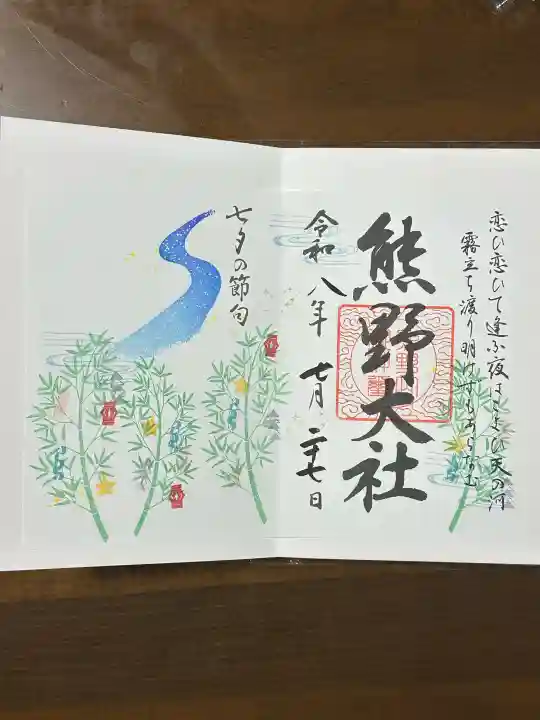 恋ひ恋ひて逢ふ夜はこよひ天の河
霧立ち渡り明けずもあらなむ
熊野大社
令和八年 七月 二十七日
七夕の節句